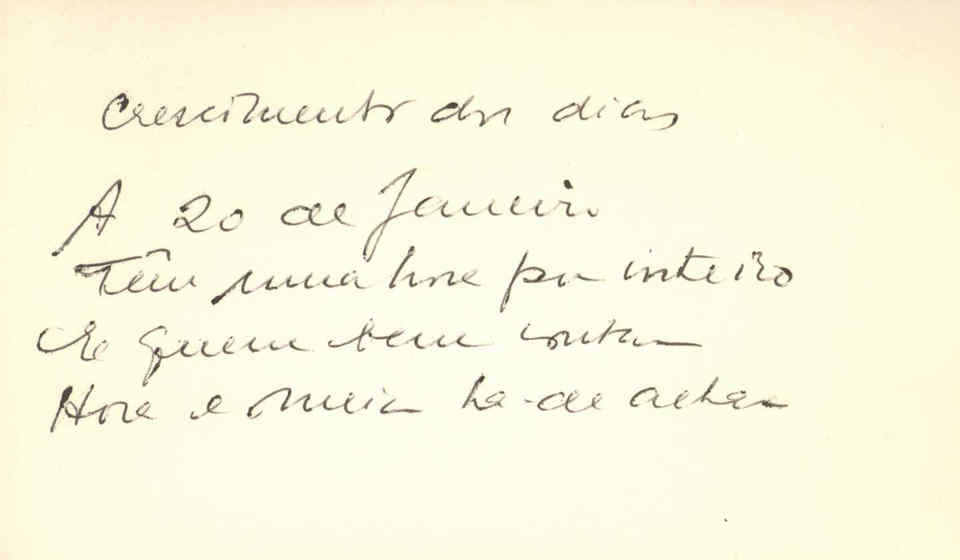 Crescimento dos dias
A 20 de Janeiro
Têm uma hora por inteiro
E quem bem contar
Hora e meia ha-de achar